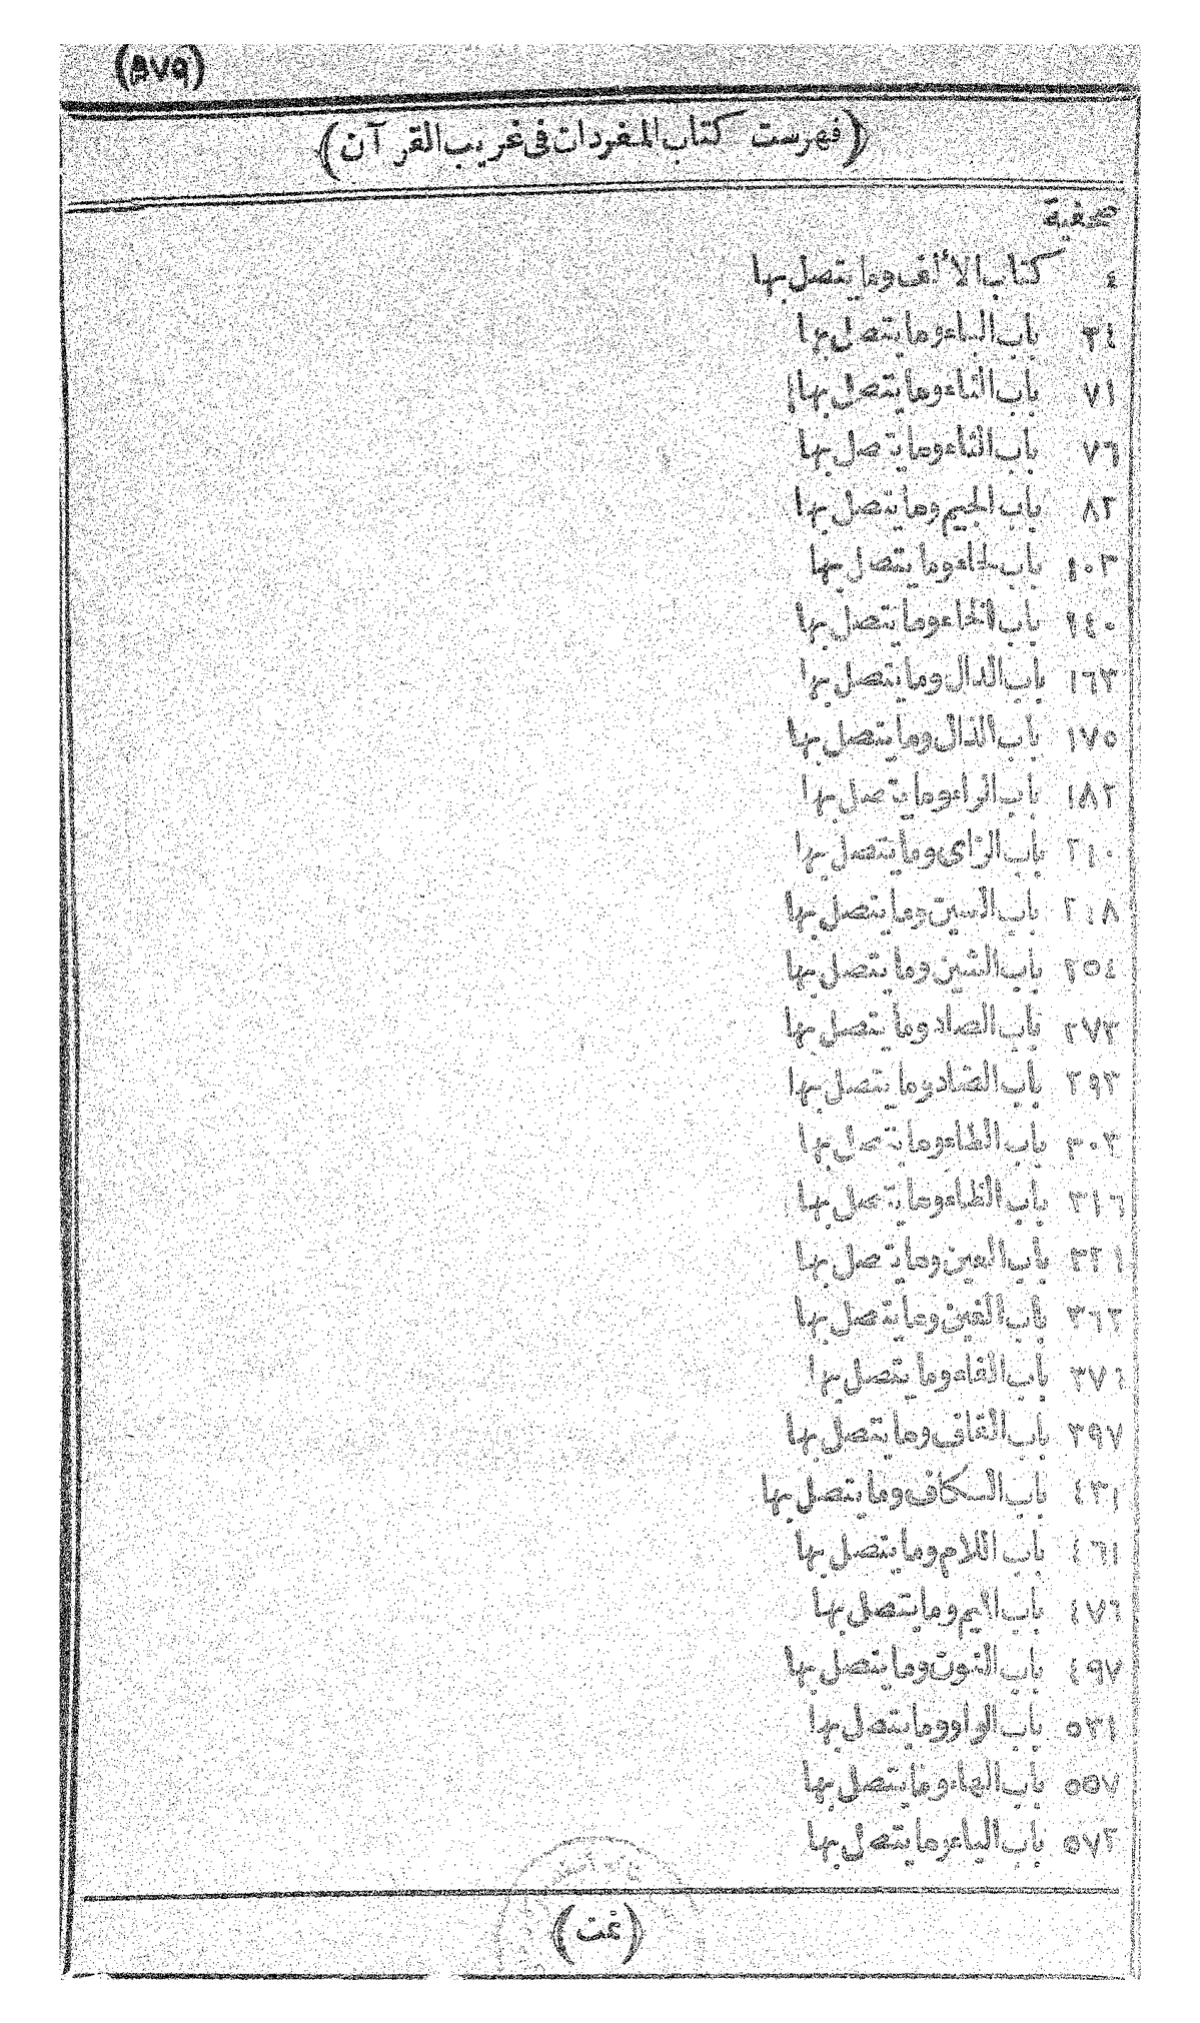 (٥٧٩)
(فهرست كتاب المفردات فى غريب القرآن)
صحفية
٤ كتاب الألف وما يتصل بها
٣٤ باب الباء وما يتصل بها
٧١ باب التاء وما يتصل بها
٧٦ باب الثاء وما يتصل بها
٨٢ باب الجيم وما يتصل بها
١٠٣ باب الحاء وما يتصل بها
١٤٠ باب الخاء وما يتصل بها
١٦٣ باب الدال وما يتصل بها
١٧٥ باب الذال وما يتصل بها
١٨٢ باب الراء وما يتصل بها
٢١٠ باب الزاى وما يتصل بها
٢١٨ باب السين وما يتصل بها
٢٥٤ باب الشين وما يتصل بها
٢٧٣ باب الصاد وما يتصل بها
٢٩٣ باب الضاد وما يتصل بها
٣٠٣ باب الطاء وما يتصل بها
٣١٦ باب الظاء وما يتصل بها
٣٢١ باب العين وما يتصل بها
٣٦٢ باب الغين وما يتصل بها
باب الفاء وما يتصل بها
٣٩٧ باب القاف وما يتصل بها
٤٣١ باب الكاف وما يتصل بها
٤٦١ باب اللام وما يتصل بها
٤٧٦ باب الميم وما يتصل بها
٤٩٧ باب النون وما يتصل بها
٥٣١ باب الواو وما يتصل بها
٥٥٧ باب الهاء وما يتصل بها
٥٧٢ باب الياء وما يتصل بها
(تمت)